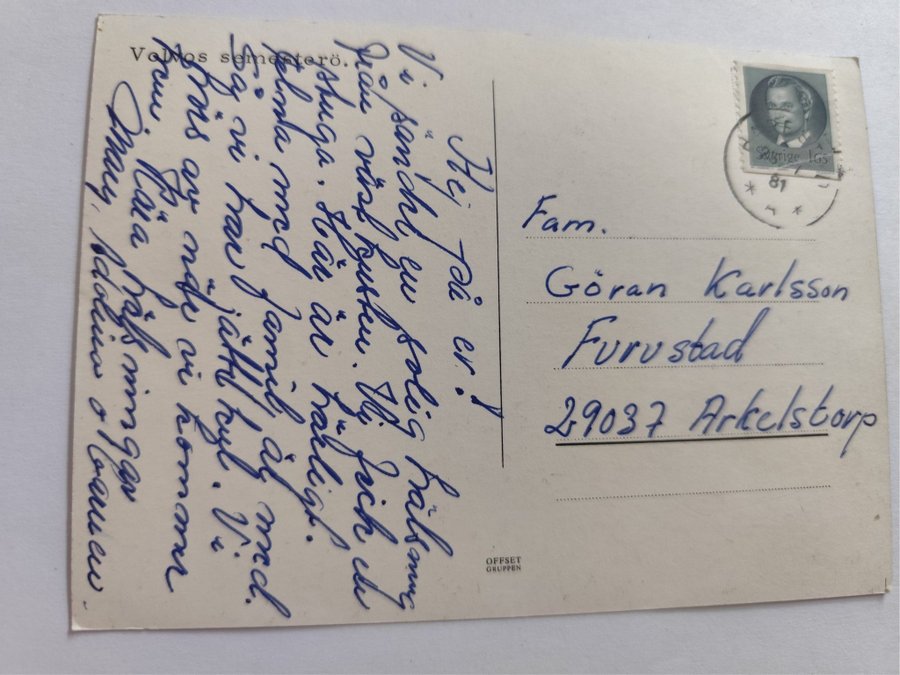 Volvos semesterö.
Hej på er!
Vi sänder en solig hälsning
från västkusten. Vi fick en
stuga. Här är härligt.
Selma med familj är med.
Så vi har jätte kul. Vi
hörs av när vi kommer
hem. Kära hälsningar
Mary, Adolina o
Sverige 165
81
Fam.
Göran Karlsson
Furustad
29037 Arkelstorp
OFFSET
GRUPPEN